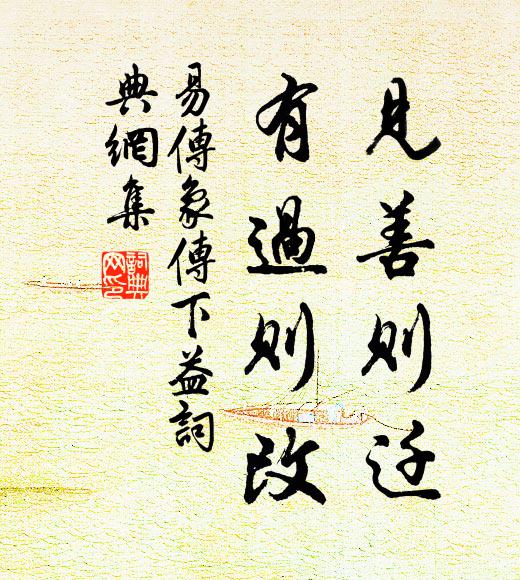 見善則迁
有過則改
易傳象傳下益詞
典網集
詞典
网印